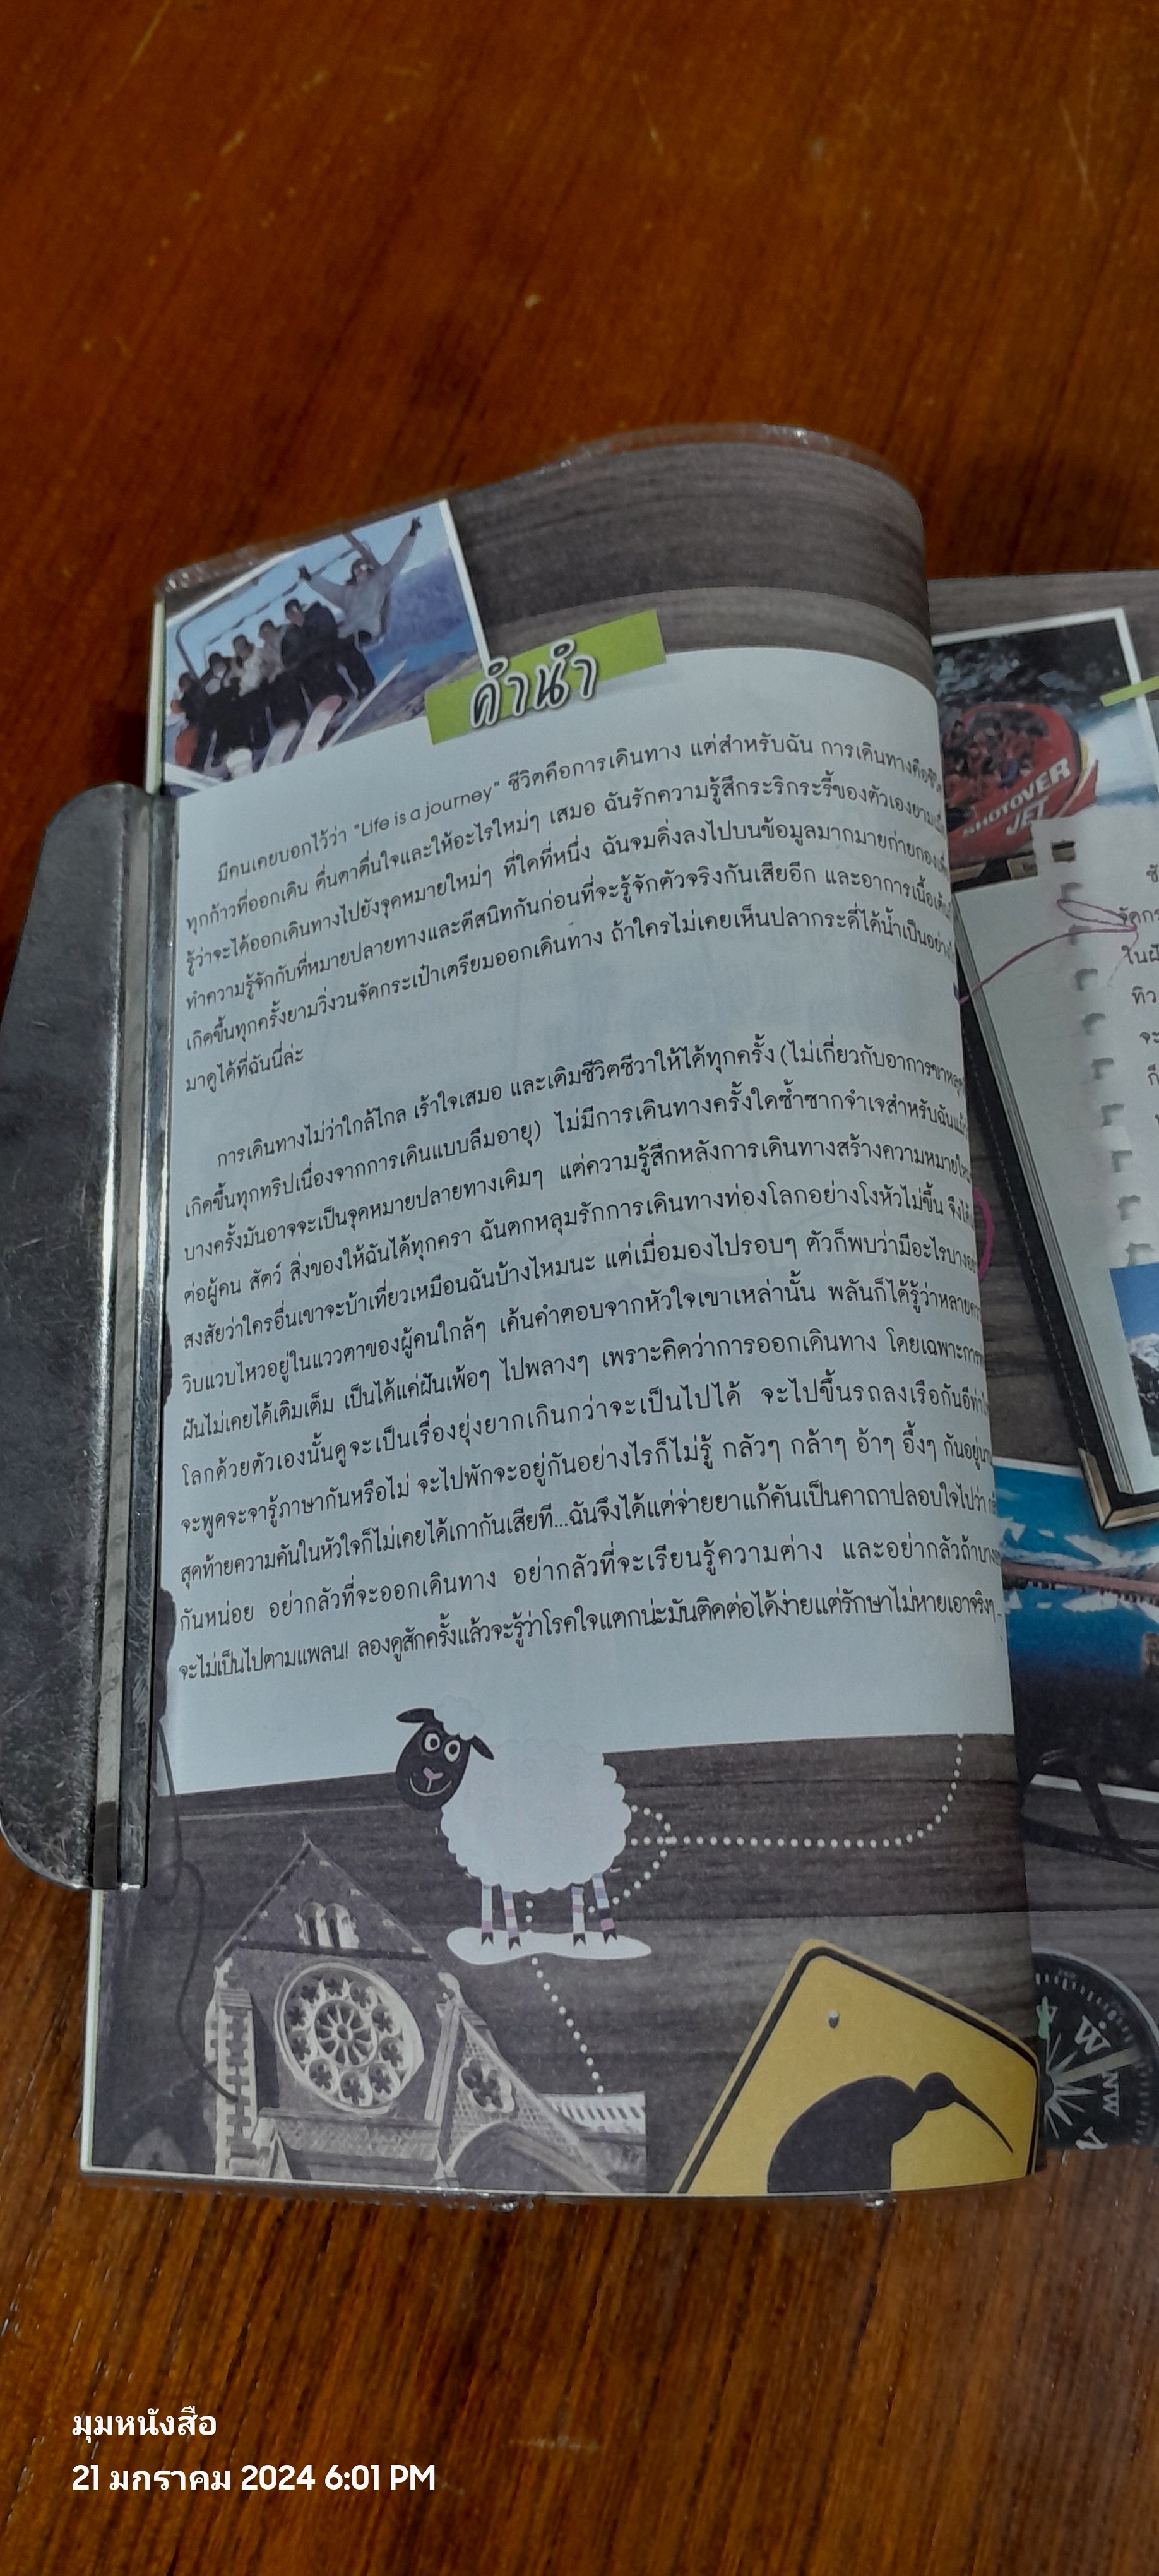 คำนำ
มีคนเคยบอกไว้ว่า "Life is a journey" ชีวิตคือการเดินทาง แต่สำหรับฉัน การเดินทางคือชีวิต
ทุกก้าวที่ออกเดิน ตื่นตาตื่นใจและให้อะไรใหม่ๆ เสมอ ฉันรักความรู้สึกระริกระรี้ของตัวเองยาม
รู้ว่าจะได้ออกเดินทางไปยังจุดหมายใหม่ๆ ที่ใดที่หนึ่ง ฉันจมดิ่งลงไปบนข้อมูลมากมายก่ายกอง
ทำความรู้จักกับที่หมายปลายทางและตีสนิทกันก่อนที่จะรู้จักตัวจริงกันเสียอีก และอาการเนื้อเต้น
เกิดขึ้นทุกครั้งยามวิ่งวนจัดกระเป๋าเตรียมออกเดินทาง ถ้าใครไม่เคยเห็นปลากระดี่ได้น้ำเป็นอย่าง
มาดูได้ที่ฉันนี่ล่ะ
การเดินทางไม่ว่าใกล้ไกล เร้าใจเสมอ และเติมชีวิตชีวาให้ได้ทุกครั้ง (ไม่เกี่ยวกับอาการขา
เกิดขึ้นทุกทริปเนื่องจากการเดินแบบลืมอายุ) ไม่มีการเดินทางครั้งใดซ้ำซากจำเจสำหรับฉัน
บางครั้งมันอาจจะเป็นจุดหมายปลายทางเดิมๆ แต่ความรู้สึกหลังการเดินทางสร้างความหมาย
ต่อผู้คน สัตว์ สิ่งของให้ฉันได้ทุกครา ฉันตกหลุมรักการเดินทางท่องโลกอย่างโงหัวไม่ขึ้น จึง
สงสัยว่าใครอื่นเขาจะบ้าเที่ยวเหมือนฉันบ้างไหมนะ แต่เมื่อมองไปรอบๆ ตัวก็พบว่ามีอะไร
วิบแวบไหวอยู่ในแววตาของผู้คนใกล้ๆ เค้นคำตอบจากหัวใจเขาเหล่านั้น พลันก็ได้รู้ว่าหลาย
ฝันไม่เคยได้เติมเต็ม เป็นได้แค่ฝันเพ้อๆ ไปพลางๆ เพราะคิดว่าการออกเดินทาง โดยเฉพาะการ
โลกด้วยตัวเองนั้นดูจะเป็นเรื่องยุ่งยากเกินกว่าจะเป็นไปได้ จะไปขึ้นรถลงเรือกันอีท่า
จะพูดจะจารู้ภาษากันหรือไม่ จะไปพักจะอยู่กันอย่างไรก็ไม่รู้ กลัวๆ กล้าๆ อ้าๆ อึ้งๆ กันอยู่
สุดท้ายความคันในหัวใจก็ไม่เคยได้เกากันเสียที...ฉันจึงได้แต่จ่ายยาแก้คันเป็นคาถาปลอบใจไปว่า
กันหน่อย อย่ากลัวที่จะออกเดินทาง อย่ากลัวที่จะเรียนรู้ความต่าง และอย่ากลัวถ้า
จะไม่เป็นไปตามแพลน! ลองดูสักครั้งแล้วจะรู้ว่าโรคใจแตกน่ะมันติดต่อได้ง่ายแต่รักษาไม่หายเอาจริงๆ
SHOTOVER
JET
ในฝั
ทิว
จะ
W
NW
N
มุมหนังสือ
21 มกราคม 2024 6:01 PM